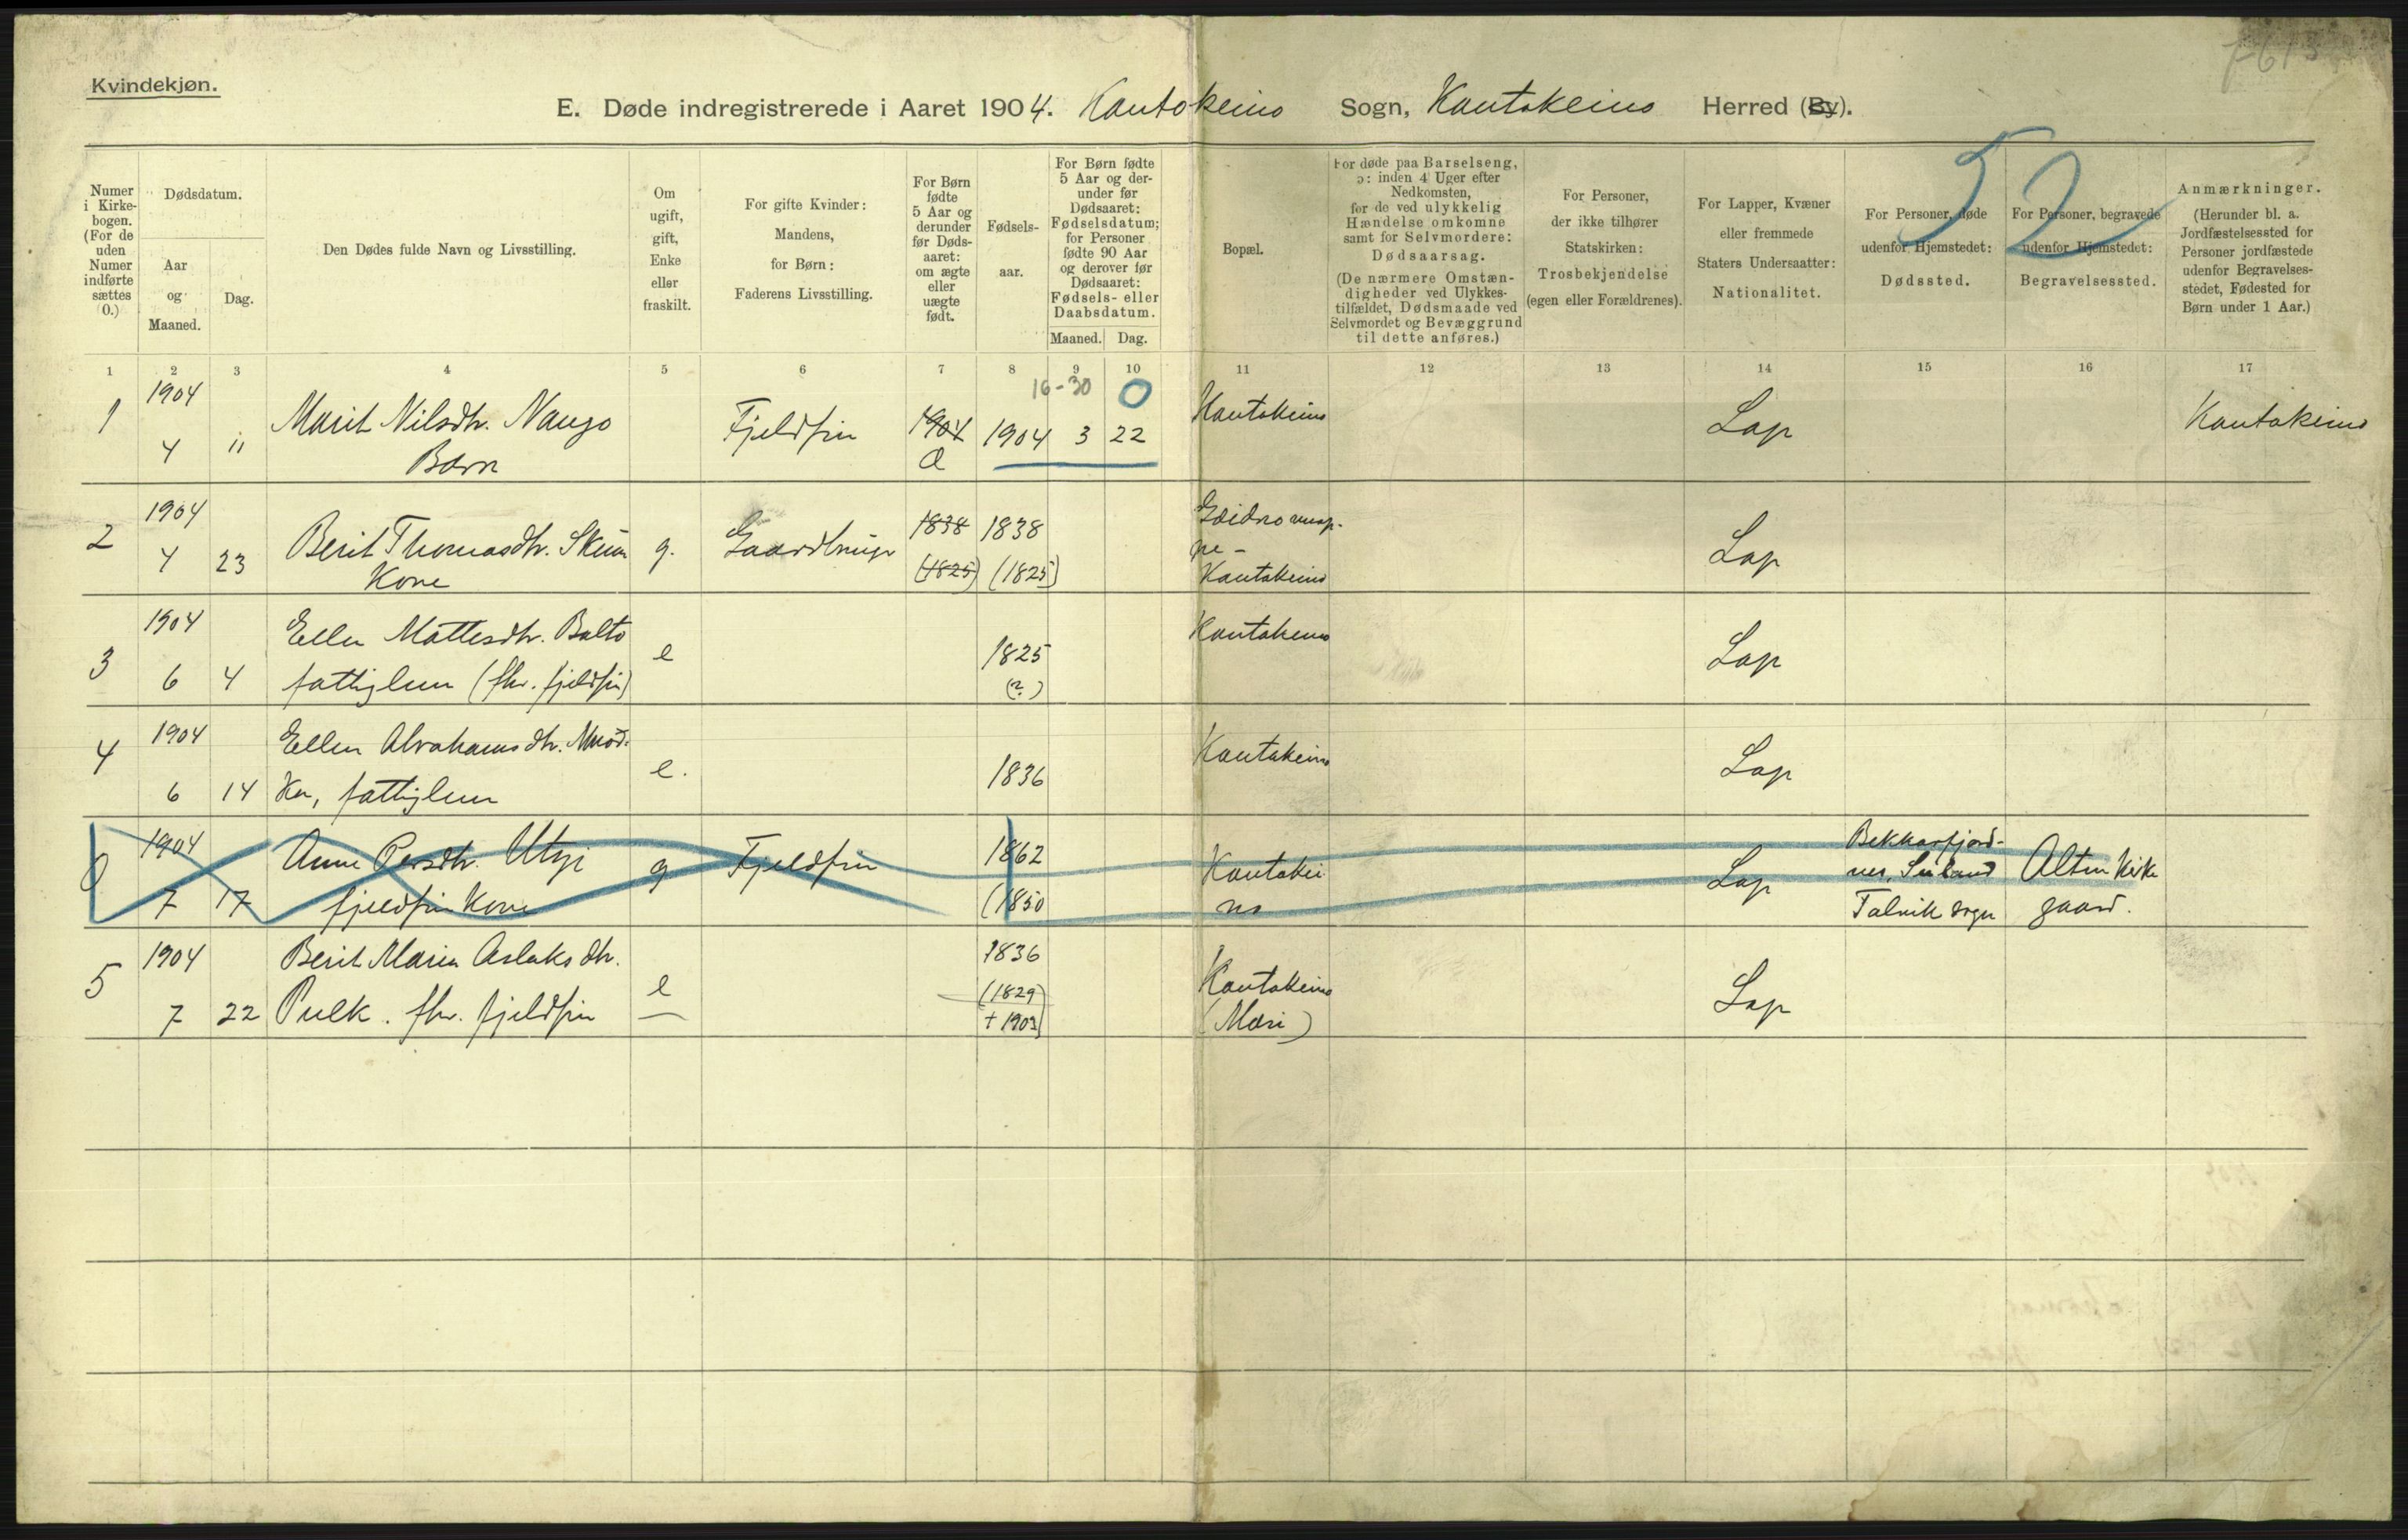 7613
Kvindekjøn.
E. Døde indregistrerede i Aaret 1904. Kautokeino Sogn, Kautokeino Herred (By).
52
Numer
i Kirke-
bogen.
(For de
uden
Numer
indførte
sættes
0.)
Dødsdatum.
Aar
og
Maaned.
Dag.
Den Dødes fulde Navn og Livsstilling.
Om
ugift,
gift,
Enke
eller
fraskilt.
For gifte Kvinder:
Mandens,
for Børn:
Faderens Livsstilling.
For Børn
fødte
5 Aar og
derunder
før Døds-
aaret:
om ægte
eller
uægte
født.
Fødsels-
aar.
For Børn fødte
5 Aar og der-
under før
Dødsaaret:
Fødselsdatum;
for Personer
fødte 90 Aar
og derover før
Dødsaaret:
Fødsels- eller
Daabsdatum.
Maaned. Dag.
Bopæl.
For døde paa Barselseng,
ɔ: inden 4 Uger efter
Nedkomsten,
for de ved ulykkelig
Hændelse omkomne
samt for Selvmordere:
Dødsaarsag.
(De nærmere Omstæn-
digheder ved Ulykkes-
tilfældet, Dødsmaade ved
Selvmordet og Bevæggrund
til dette anføres.)
For Personer,
der ikke tilhører
Statskirken:
Trosbekjendelse
(egen eller Forældrenes).
For Lapper, Kvæner
eller fremmede
Staters Undersaatter:
Nationalitet.
For Personer, døde
udenfor Hjemstedet:
Dødssted.
For Personer, begravede
udenfor Hjemstedet:
Begravelsessted.
Anmærkninger.
(Herunder bl. a.
Jordfæstelsessted for
Personer jordfæstede
udenfor Begravelses-
stedet, Fødested for
Børn under 1 Aar.)
1 2 3 4 5 6 7 8 9 10 11 12 13 14 15 16 17
16-30 0
1904
1 Marit Nilsdtr. Nango Fjeldfin 1904 1904 3 22 Kautokeino Lap Kautokeino
4 11 Barn
1904 1838 1838
2 Berit Thomasdtr. Skum g. Gaardbruger Kautokeino Lap
4 23 Kone (1825) (1825)
1904 Ellen Mattesdtr. Balto Kautokeino
3 e 1825 Lap
6 4 fattiglem (fhv. fjeldfin) (?)
1904 Ellen Abrahamsdtr.
4 e. 1836 Kautokeino Lap
6 14 fattiglem
1904 Anne Persdtr. Utsi 1862 Bekkarfjord-
0 g Fjeldfin Kautokei Lap nes, Seiland Alten Kirke
7 17 fjeldfin Kone (1850 no Talvik sogn gaard.
1904 Berit Maria Aslaksdtr. 1836
5 e (1829) Kautokeino Lap
7 22 Pulk. fhv. fjeldfin + 1903) (Masi)